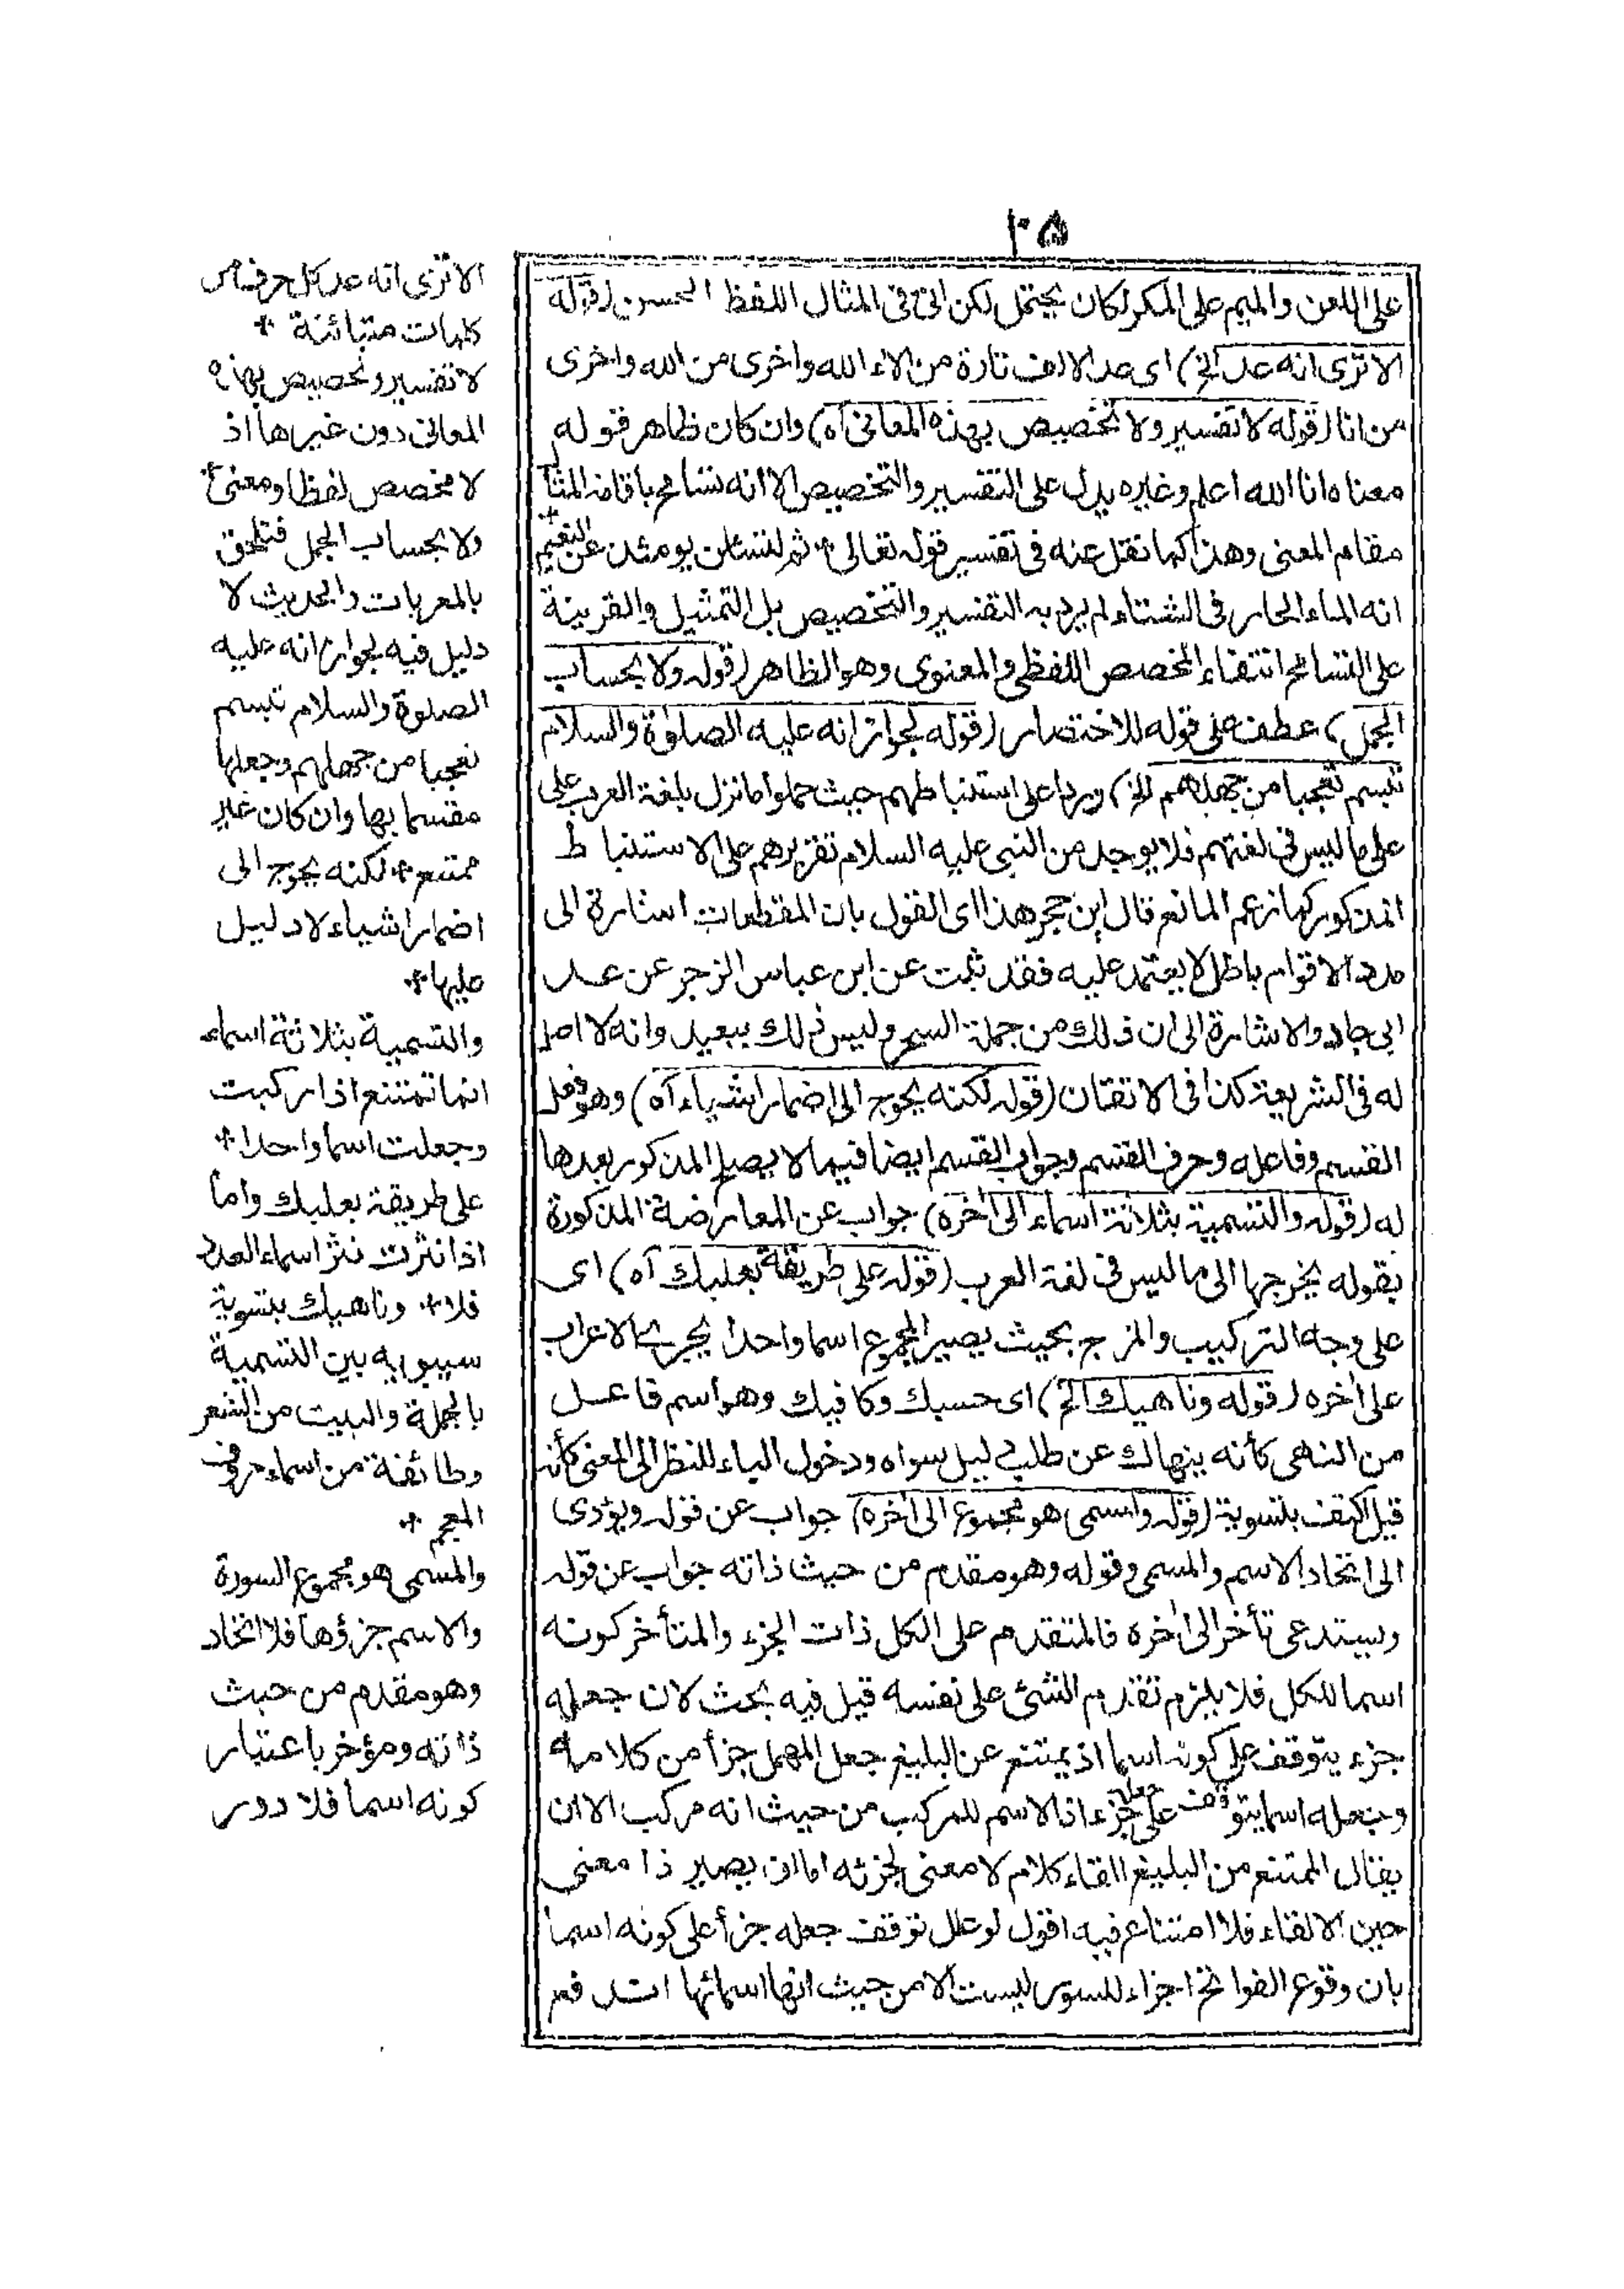 ١٠٥
على اللعن والميم على المكر لكان يحتمل لكن اتى فى المثال اللفظ الحسن (قوله
الا ترى انه عد الخ) اى عد الالف تارة من الاء الله واخرى من الله واخرى
من انا (قوله لا تفسير ولا تخصيص بهذه المعانى آه) وان كان ظاهر قوله
معناه انا الله اعلم وغيره يدل على التفسير والتخصيص الا انه تسامح باقامة المثال
مقام المعنى وهذا كما نقل عنه فى تفسير قوله تعالى * ثم لتسئلن يومئذ عن النعيم *
انه الماء الحار فى الشتاء لم يرد به التفسير والتخصيص بل التمثيل والقرينة
على التسامح انتفاء المخصص اللفظى والمعنوى وهو الظاهر (قوله ولا بحساب
الجمل) عطف على قوله للاختصار (قوله لجواز انه عليه الصلوٰة والسلام
تبسم تعجبا من جهلهم الخ) وردا على استنباطهم حيث حملوا ما نزل بلغة العرب على
على ما ليس فى لغتهم فلا يوجد من النبى عليه السلام تقريرهم على الاستنباط
المذكور كما زعم المانع قال ابن حجر هذا اى القول بان المقطعات اشارة الى
مدد الاقوام باطل لا يعتمد عليه فقد ثبت عن ابن عباس الزجر عن عد
ابى جاد والاشارة الى ان ذلك من جملة السحر وليس ذلك ببعيد وانه لا اصل
له فى الشريعة كذا فى الاتقان (قوله لكنه يحوج الى اضمار اشياء آه) وهو فعل
القسم وفاعله وحرف القسم وجواب القسم ايضا فيما لا يصلح المذكور بعدها
له (قوله والتسمية بثلاثة اسماء الى اٰخره) جواب عن المعارضة المذكورة
بقوله يخرجها الى ما ليس فى لغة العرب (قوله على طريقة بعلبك آه) اى
على وجه التركيب والمزج بحيث يصير المجموع اسما واحدا يجرى الاعراب
على اٰخره (قوله وناهيك الخ) اى حسبك وكافيك وهو اسم فاعل
من النهى كأنه ينهاك عن طلب دليل سواه ودخول الباء للنظر الى المعنى كأنه
قيل اكتف بتسوية (قوله والمسمى هو مجموع الى اٰخره) جواب عن قوله ويؤدى
الى اتحاد الاسم والمسمى وقوله وهو مقدم من حيث ذاته جواب عن قوله
ويستدعى تأخر الى اٰخره فالمتقدم على الكل ذات الجزء والمتأخر كونه
اسما للكل فلا يلزم تقدم الشئ على نفسه قيل فيه بحث لان جعله
جزء يتوقف على كونه اسما اذ يمتنع عن البليغ جعل المهمل جزأ من كلامه
وجعله اسما يتوقف على جعله جزء اذ الاسم للمركب من حيث انه مركب الا ان
يقال الممتنع من البليغ القاء كلام لا معنى لجزئه اما ان يصير ذا معنى
حين الالقاء فلا امتناع فيه اقول لو علل توقف جعله جزأ على كونه اسما
بان وقوع الفواتح اجزاء للسور ليست الا من حيث انها اسمائها اندفع
الا ترى انه عد كل حرف من
كلمات متبائنة *
لا تفسير وتخصيص بهذه
المعانى دون غيرها اذ
لا مخصص لفظا ومعنى *
ولا بحساب الجمل فتلحق
بالمعربات والحديث لا
دليل فيه لجواز انه عليه
الصلوة والسلام تبسم
تعجبا من جهلهم وجعلها
مقسما بها وان كان غير
ممتنع * لكنه يحوج الى
اضمار اشياء لا دليل
عليها *
والتسمية بثلاثة اسماء
انما تمتنع اذا ركبت
وجعلت اسما واحدا *
على طريقة بعلبك واما
اذا نثرت نثر اسماء العدد
فلا * وناهيك بتسوية
سيبويه بين التسمية
بالجملة والبيت من الشعر
وطائفة من اسماء حروف
المعجم *
والمسمى هو مجموع السورة
والاسم جزؤها فلا اتحاد
وهو مقدم من حيث
ذاته ومؤخر باعتبار
كونه اسما فلا دور